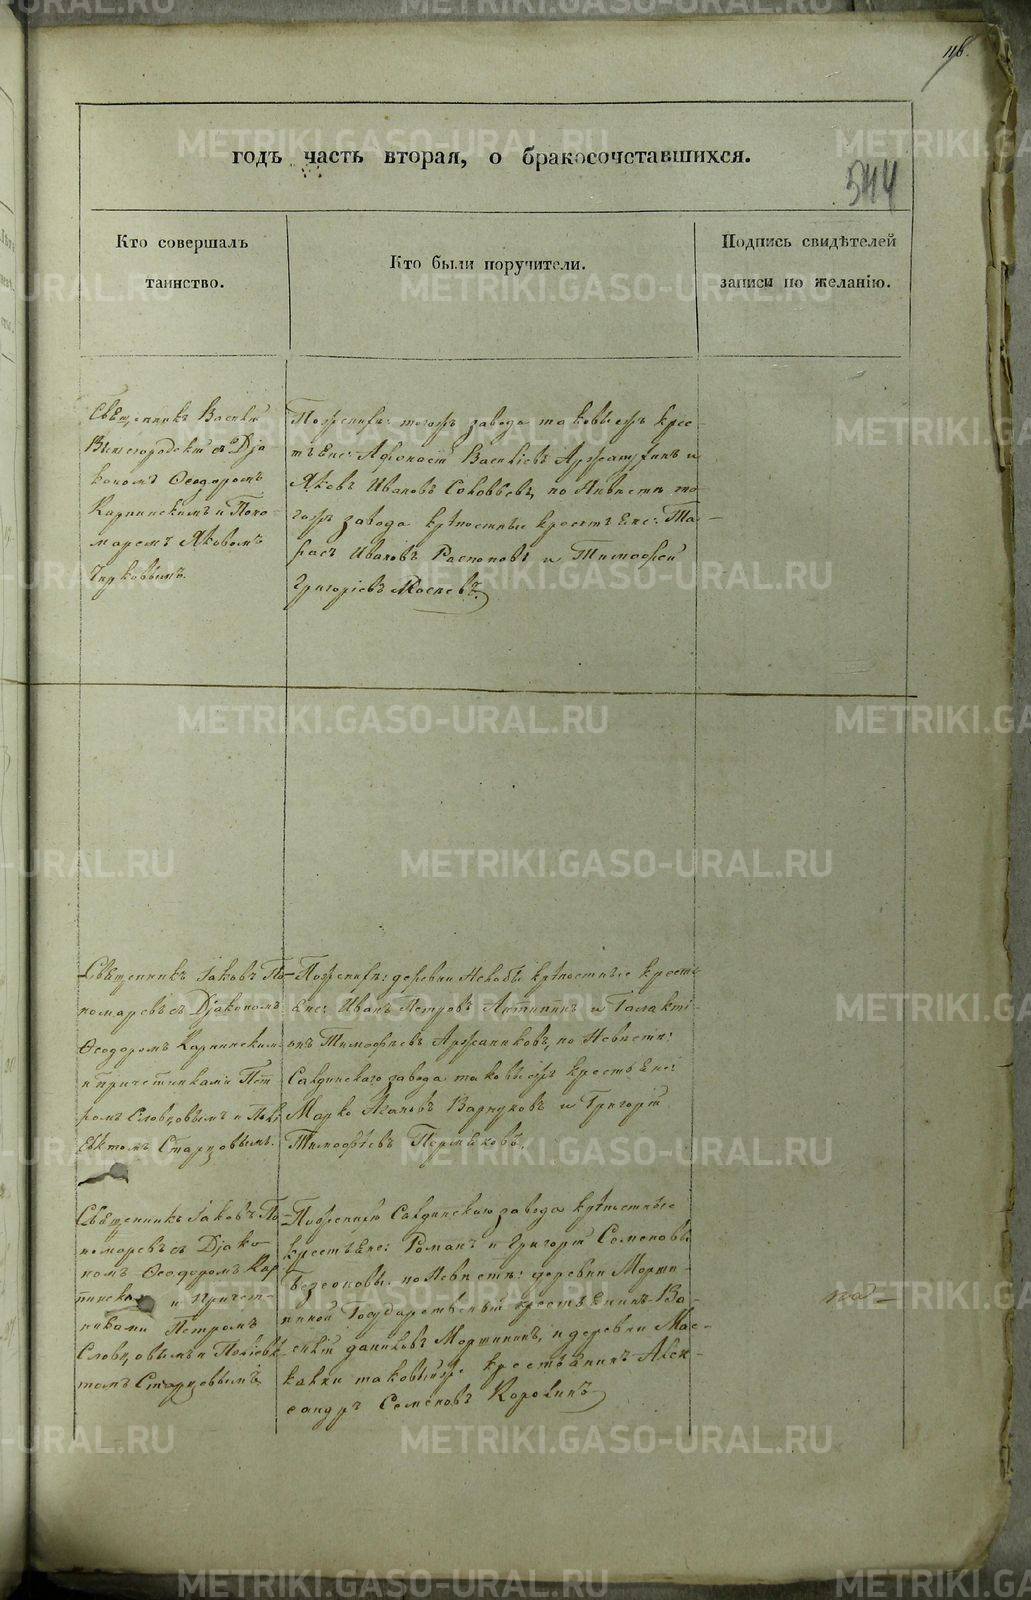 116.
годъ часть вторая, о бракосочетавшихся.
544
Кто совершалъ
таинство.
Кто были поручители.
Подпись свидѣтелей
записи по желанію.
Священникъ Василій
Вышегородскій съ Дія
кономъ Ѳеодоромъ
Карпинскимъ и Поно-
маремъ Яковомъ
Чирковымъ.
По женихѣ: тогожъ завода таковыежъ крес-
тьяне: Афонасій Васильевъ и
Яковъ Ивановъ Соловьевъ, по невѣстѣ то-
гожъ завода крѣпостные крестьяне: Та-
расъ Ивановъ Распоповъ и Тимофей
Григоріевъ Мосѣевъ.
Священникъ Іаковъ По-
номаревъ съ Діакономъ
Ѳеодоромъ Карпинским
и причетниками Пет
ромъ Словцовымъ и Полі
евктомъ Старцовымъ.
По женихѣ: деревни крѣпостные кресть
яне: Иванъ Петровъ Антипинъ и Галакті-
онъ Тимофіевъ Аржанниковъ, по невѣстѣ:
Савдинскаго завода таковыежъ крестьяне:
Марко Варнуковъ и Григорій
Тимофѣевъ Пермяковъ.
Священникъ Іаковъ По
номаревъ съ Діако
номъ Ѳеодоромъ Кар
пинским и Причет-
никами Петромъ
Словцовымъ и Поліевк
томъ Старцовымъ
По женихѣ Савдинскаго завода крѣпостные
крестьяне: Романъ и Григорій Семеновы
Безсоновы, по невѣстѣ: деревни Морши-
ниной Государственный крестьянинъ Ва-
силій Даниловъ Моршининъ, и деревни Мас-
ловки таковыйже крестьянинъ Алек-
сандръ Семеновъ Коровинъ
METRIKI.GASO-URAL.RU